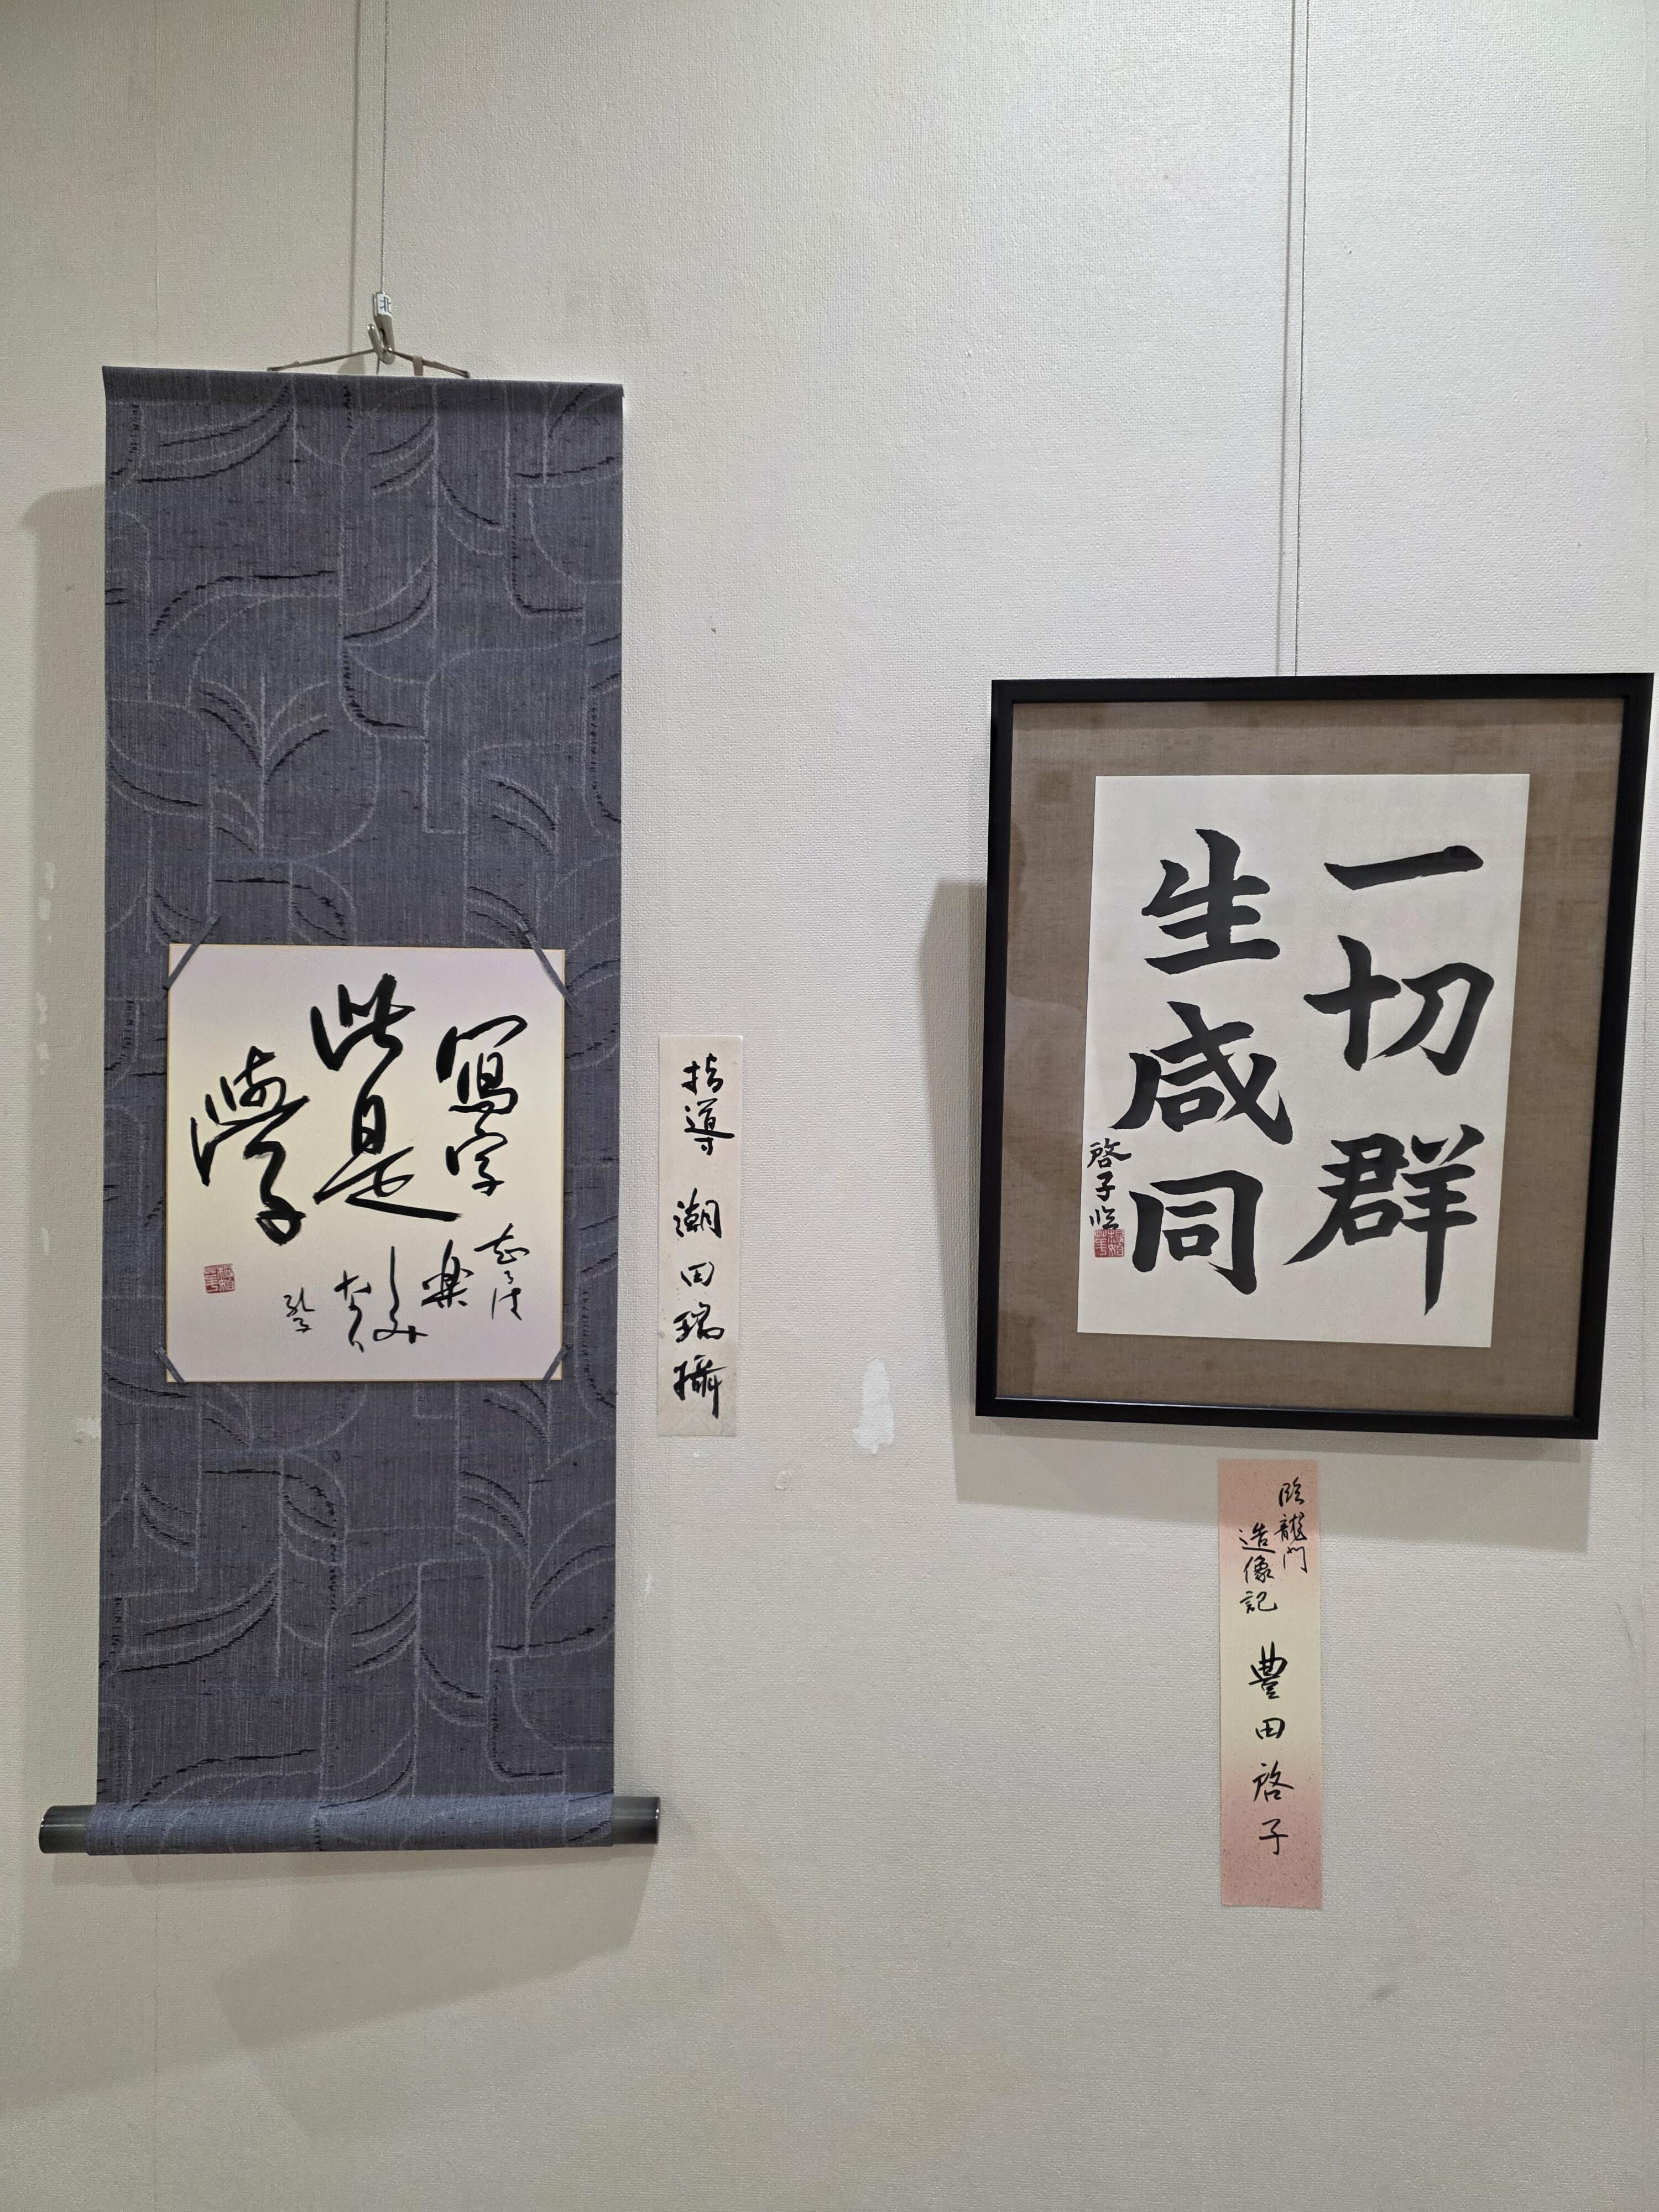 一切群
生咸同
啓子臨
臨龍門
造像記
豊田啓子
指導 潮田瑞攝
寫字
此是
學
楽
しみ
北